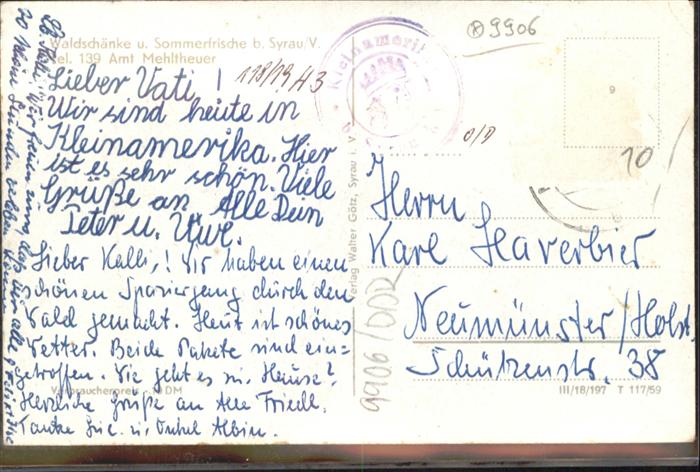 Waldschänke u. Sommerfrische b. Syrau/V.
Tel. 139 Amt Mehltheuer
Lieber Vati!
Wir sind heute in
Kleinamerika. Hier
ist es sehr schön. Viele
Grüße an Alle Dein
Peter u. Uwe.
Lieber Kalli,! Wir haben einen
schönen Spaziergang durch den
Wald gemacht. Heut ist schönes
Wetter. Beide Pakete sind ein=
getroffen. Wie geht es zu Hause?
Herzliche Grüße an Alle Friedl,
Tante u. Onkel Albin.
Wir freuen uns
Verbraucherpreis DM
118/19 A3
Kleinameri
Verlag Walter Götz, Syrau i. V.
9906/DDR
9906
o/D
9
10
Herrn
Karl Haverbier
Neumünster/Holst.
Schützenstr. 38
III/18/197 T 117/59